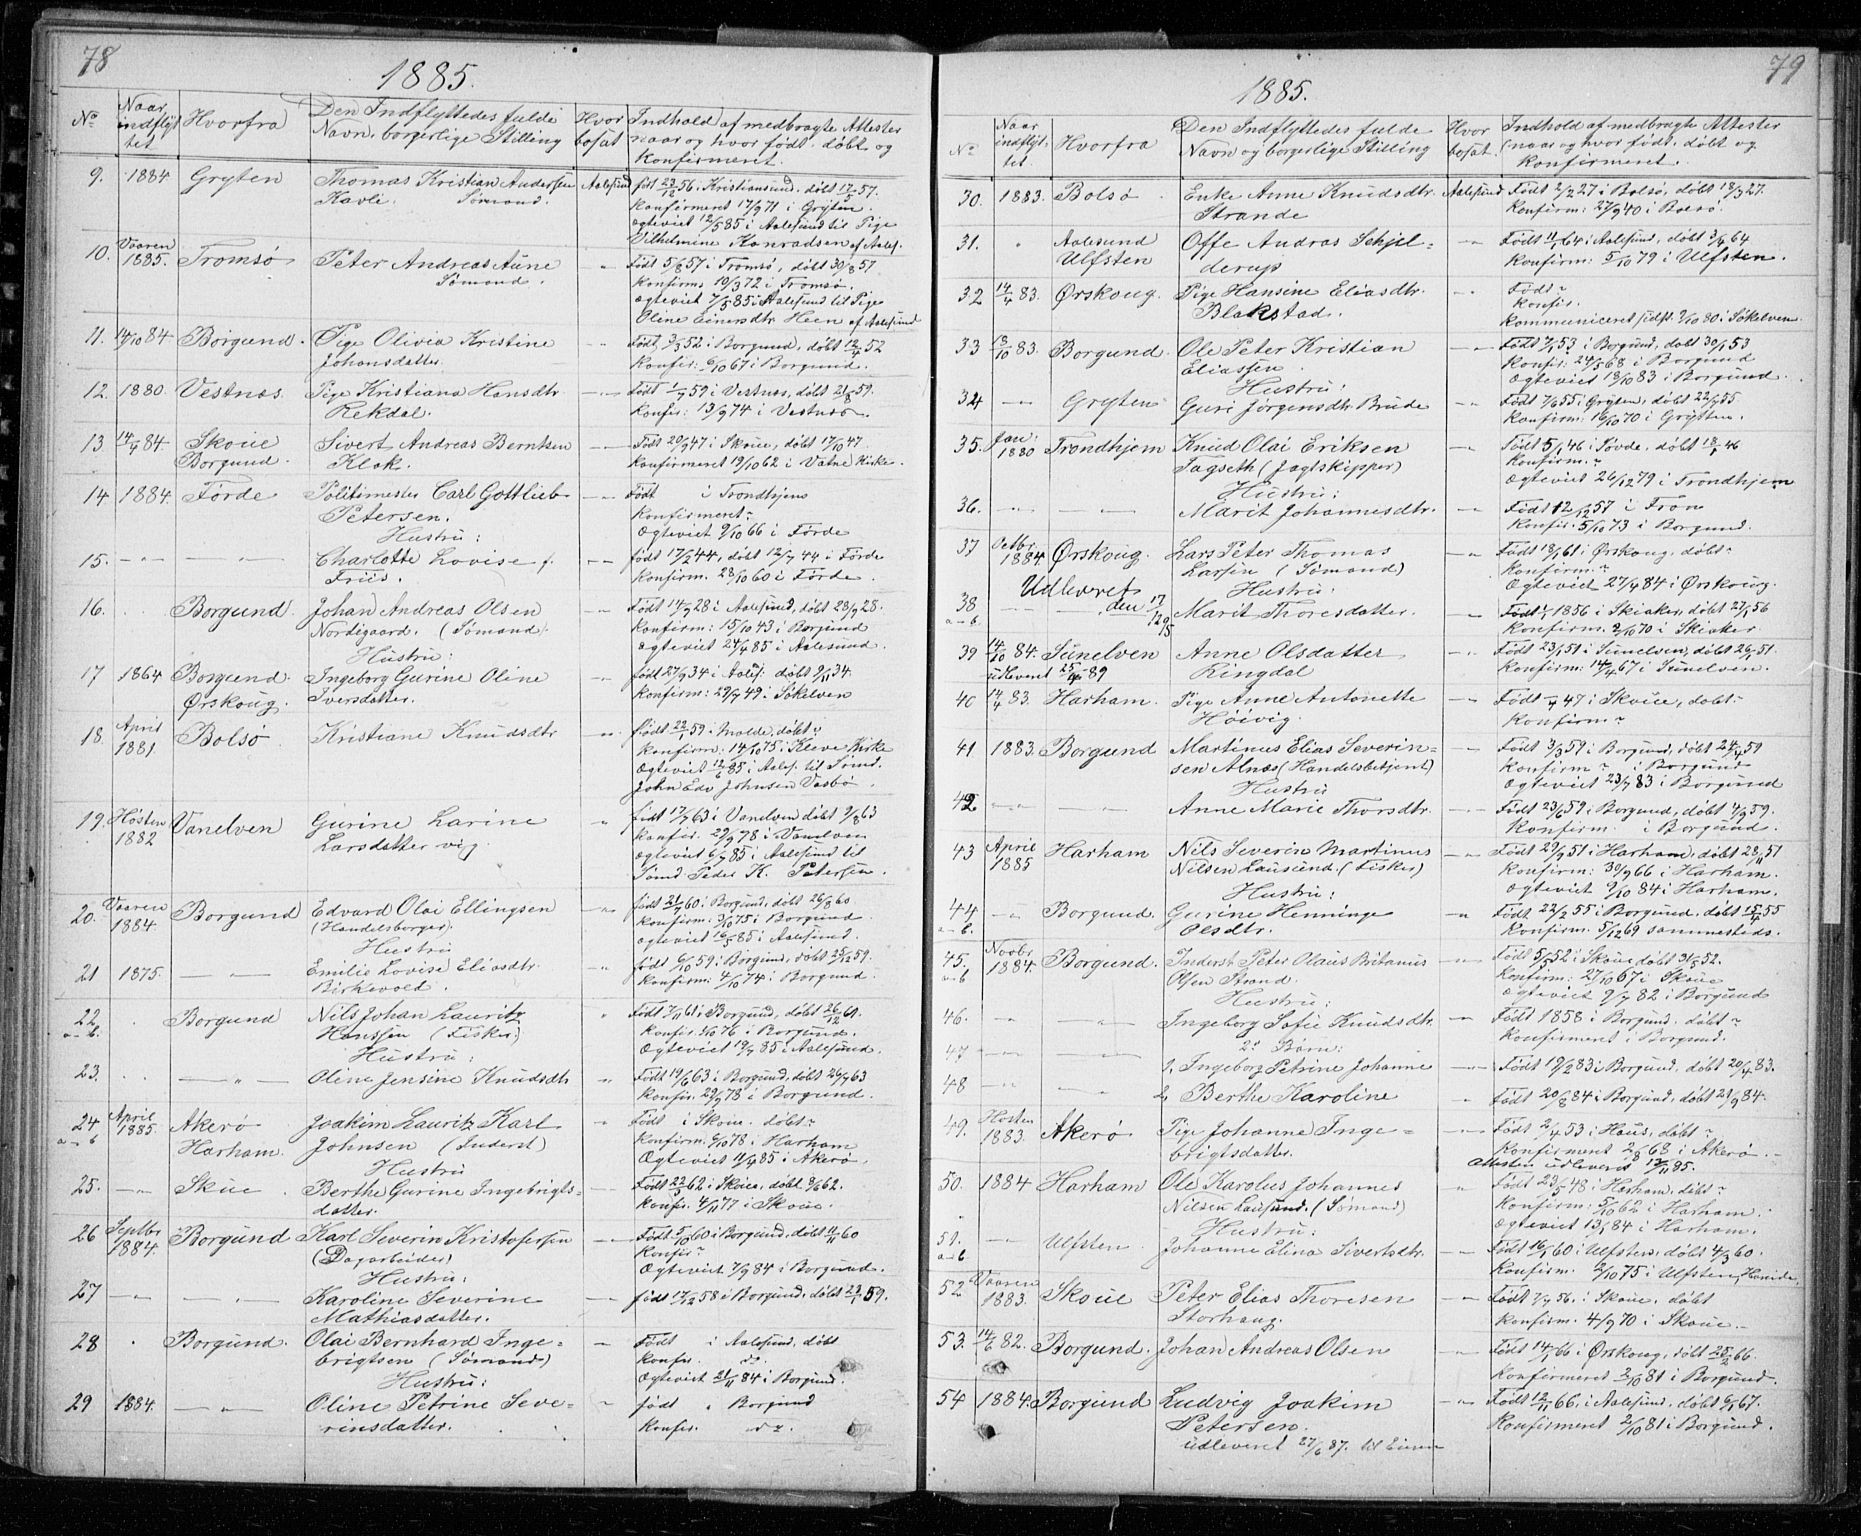 78
1885.
No
Naar indflyttet
Hvorfra
Den Indflyttedes fulde Navn, borgerlige Stilling
Hvor bosat
Indhold af medbragte Attester naar og hvor født, døbt og konfirmeret.
9. 1884 Gryten Thomas Kristian Andersen Aalesund født 23/12 56 i Kristiansund, døbt 17/5 57.
Havle. Sømand. konfirmeret 17/9 71 i Gryten.
ægteviet 12/5 85 i Aalesund til Pige
Vilhelmine Konradsen af Aales.
10. Vaaren 1885. Tromsø Peter Andreas Aune - Født 5/8 57 i Tromsø, døbt 30/8 57
Sømand. konfirm. 19/3 72 i Tromsø.
ægteviet 7/5 85 i Aalesund til Pige
Oline Einersdtr. Heen af Aalesund
11. 14/10 84 Borgund. Pige Olivia Kristine - Født 3/3 52 i Borgund, døbt 12/4 52
Johansdatter. Konfir: 6/10 67 i Borgund.
12. 1880. Vestnæs. Pige Kristiana Hansdtr. - Født 1/7 59 i Vestnæs, døbt 21/8 59.
Rekdal. Konfir: 13/9 74 i Vestnæs.
13 14/4 84. Skoue Sivert Andreas Berntsen - Født 20/9 47 i Skoue, døbt 17/10 47
Borgund. Klok. Konfirmeret 19/10 62 i Vatne Kirke.
14. 1884. Førde Politimester Carl Gottlieb - Født i Trondhjem
Petersen. Konfirmeret ~
Hustru: Ægteviet 9/10 66 i Førde
15. -"- -"- Charlotte Lovise f. - født 17/2 44, døbt 12/7 44 i Førde
Friis. Konfirm. 28/10 60 i Førde.
16. Borgund. Johan Andreas Olsen - Født 14/9 28 i Aalesund, døbt 28/9 28.
Nordigaard. (Sømand). Konfirm: 15/10 43 i Borgund
Hustru: ægteviet 24/4 85 i Aalesund.
17 1864 Borgund Ingeborg Gurine Oline født 27/9 34 i Aales. døbt 9/11 34.
Ørskoug. Iversdatter. Konfirm: 29/7 49 i Søkelven
18. April 1881 Bolsø Kristiane Knudsdtr. født 22/1 59 i Molde, døbt ~
Konfirm: 14/10 75 i Kleve Kirke
Ægteviet 12/6 85 i Aales. til Sømd.
John Edv Johnsen Vasbø.
19. Høsten 1882 Vanelven Gurine Larine født 17/7 63 i Vanelven døbt 9/8 63
Larsdatter vig. konfir. 29/9 78 i Vanelven
Ægteviet 6/7 85 i Aalesund til
Sømd Peder K. Petersen.
20. Vaaren 1884. Borgund Edvard Olai Ellingsen født 21/7 60 i Borgund, døbt 26/8 60
(Handelsborger). Konfirm: 3/10 75 i Borgund
Hustru ægteviet 16/5 85 i Aalesund.
21 1875. -"- Emilie Lovise Eliasdtr. født 6/10 59 i Borgund, døbt 25/12 59.
Birkevold. Konfirm: 4/10 74 i Borgund.
22 a-b. Borgund Nils Johan Lauritz Født 7/11 61 i Borgund, døbt 26/12 61.
Hanssen (Fisker) Konfir. 1/10 76 i Borgund.
Hustru: Ægteviet 19/7 85 i Aalesund.
23. -"- Oline Jensine Knudsdtr. Født 19/6 63 i Borgund, døbt 26/7 63
Konfir. 29/9 78 i Borgund.
24 a-b April 1885. Akerø Joakim Lauritz Karl Født i Skoue. døbt ~
Harham. Johnsen (Inderst) Konfirm: 6/10 78 i Harham
Hustru Ægteviet 11/4 85 i Akerø.
25. -"- Skoue. Berthe Gurine Ingebrigts- Født 22/5 62 i Skoue. døbt 9/6 62.
datter. Konfir. 4/11 77 i Skoue.
26 Septbr 1884. Borgund Karl Severin Kristofersen Født 5/10 60 i Borgund, døbt 11/11 60
(Dagarbeider) Konfir ~
Hustru: Ægteviet 7/9 84 i Borgund.
27 - - Karoline Severine født 17/12 58 i Borgund, døbt 23/1 59.
Mathiasdatter.
28 Borgund. Olai Bernhard Inge- Født i Aalesund, døbt
brigtsen (Sømand) Konfir. do.
Hustru: Ægteviet 21/11 84 i Borgund.
29 1884. -"- Oline Petrine Seve- født " Borgund
rinsdatter. Konfir. do.
79
1885.
No
Naar indflyttet.
Hvorfra
Den Indflyttedes fulde Navn og borgerlige Stilling
Hvor bosat.
Indhold af medbragte Attester (naar og hvor født, døbt og konfirmeret.
30. 1883. Bolsø. Enke Anne Knudsdtr. Aalesund Født 2/2 27 i Bolsø, døbt 18/3 27.
Strande Konfirm: 27/9 40 i Bolsø.
31. " Aalesund Offe Andras Schjel- Født 11/1 64 i Aalesund, døbt 3/4 64
Ulfsten derup Konfirm: 5/10 79 i Ulfsten.
32 14/4 83. Ørskoug. Pige Hansine Eliasdtr. Født ~
Blakstad. Konfir.
Kommuniceret sidst. 3/10 80 i Søkelven.
33 18/10 83. Borgund. Ole Peter Kristian Født 7/1 53 i Borgund, døbt 30/1 53
Eliassen. Konfir: 24/5 68 i Borgund
Hustru: Ægteviet 18/10 83 i Borgund.
34 -"- Gryten Guri Jørgensdtr. Brude Født 7/6 55 i Gryten, døbt 22/7 55
Konfirm. 16/10 70 i Grytten.
35. Jan: 1880 Trondhjem Knud Olai Eriksen Født 5/1 46 i Søvde, døbt 18/1 46
Fagseth (Jagtskipper) Konfirm. ~
Hustru: Ægteviet 26/12 79 i Trondhjem
36. -"- -"- Marit Johannesdtr. Født 12/12 57 i Fron
Konfir. 5/10 73 i Borgund.
37 Octbr 1884 Ørskoug. Lars Peter Thomas Født 18/1 61 i Ørskoug, døbt ~
Larsen (Sømand) Konfirm. ~
Udleveret Hustru: Ægteviet 27/7 84 i Ørskoug.
38 a-b. den 17/12 95 Marit Thoresdatter. Født 1/1 1856 i Skiaker, døbt 27/1 56
Konfirm. 2/10 70 i Skiaker.
39 14/10 84. Sunelven Anne Olsdatter Født 23/1 51 i Sunelven, døbt 26/1 51.
udleveret 25/4 89 Ringdal Konfirm: 14/4 67 i Sunelven.
40 14/4 83. Harham. Pige Anne Antonette Født 47 i Skoue, døbt ~
Høivig. Konfirm ~
41. 1883. Borgund Martinus Elias Severin- Født 3/3 59 i Borgund, døbt 24/4 59
sen Alnæs (Handelsbetjent) Konfirm ~ i Borgund
Hustru Ægteviet 23/7 83 i Borgund
42. -"- -"- Anne Marie Thorsdtr. Født 23/6 59 i Borgund, døbt 4/9 59.
Konfirm. i Borgund.
43 April 1885 Harham Nils Severin Martinus Født 29/9 51 i Harham, døbt 28/11 51
Nilsen Lausund. (Fisker) Konfirm: 30/9 66 i Harham.
Hustru: Ægteviet 9/10 84 i Harham.
44 a-b. -"- Borgund. Gurine Henninge Født 22/2 55 i Borgund, døbt 15/4 55
Olsdtr. Konfirm. 5/12 69 sammesteds.
45. a-b Novbr 1884. Borgund. Inderst Peter Olaus Britanus Født 5/5 52 i Skoue døbt 31/5 52.
Olsen Strand. Konfirm: 27/10 67 i Skoue
Hustru: Ægteviet 9/7 82 i Borgund
46. -"- " Ingeborg Sofie Knudsdtr. Født 1858 i Borgund. døbt ~
2. Børn: Konfirmeret i Borgund.
47 -"- " 1. Ingeborg Petrine Johanne Født 19/2 83 i Borgund, døbt 20/4 83.
48 -"- " 2. Berthe Karoline Født 20/8 84 i Borgund, døbt 21/9 84.
49. Høsten 1883. Akerø Pige Johanne Inge- Født 2/4 53 i Haus, døbt ~
brigtsdatter. Konfirmeret 2/8 68 i Akerø.
Attesten udleveret 12/11 85.
50. 1884 Harham Ole Karolus Johannes Født 23/5 48 i Harham, døbt ~
Nilsen Lausund. (Sømand) Konfirm: 5/10 62 i Harham.
Hustru: Ægteviet 13/1 84 i Harham.
51. a-b -"- Ulfsten. Johanne Elina Sivertsdtr. Født 16/1 60 i Ulfsten, døbt 4/3 60.
Konfirm. 2/10 75 i Ulfsten, Hareide
52 Vaaren 1883. Skoue Peter Elias Thoresen Født 7/7 56. i Skoue, døbt
Storhaug. Konfirm. 4/9 70 i Skoue.
53. 14/6 82. Borgund. Johan Andreas Olsen Født 14/1 66 i Ørskoug, døbt 25/2 66.
Konfirmeret 2/10 81 i Borgund.
54 1884. Borgund Ludvig Joakim Født 12/11 66. i Aalesund, døbt 6/1 67.
Petersen. Konfirmeret 2/10 81 i Borgund.
udleveret 27/6 87. til Eieren